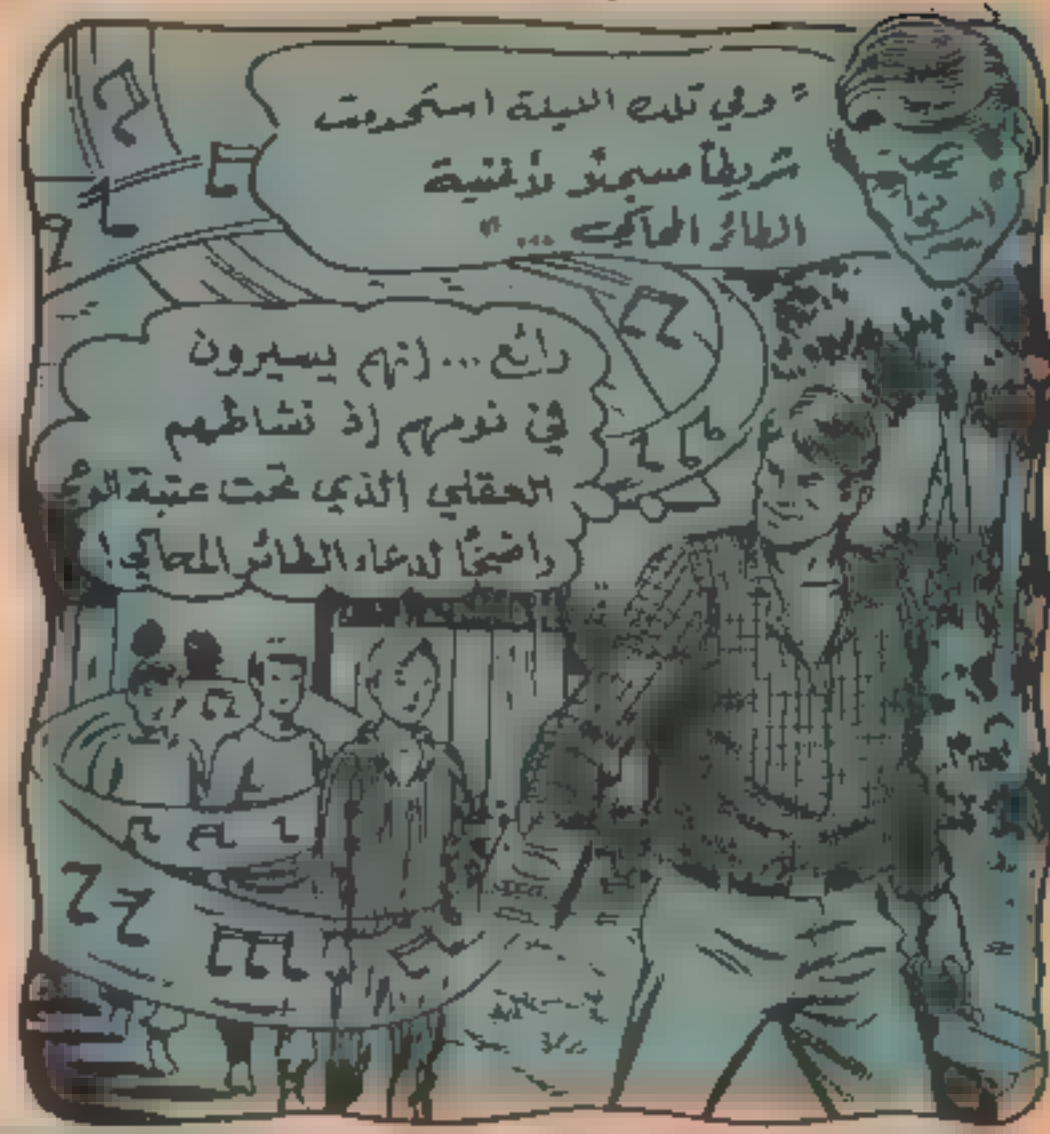 "وفي تلك الليلة استخدمت
شريطاً مسجلاً لأغنية
الطائر المحاكي ..."
رائع ... إنهم يسيرون
في نومهم إذ نشاطهم
العقلي الذي تحت عتبة الوعي
واضحًا لدعاء الطائر المحاكي!